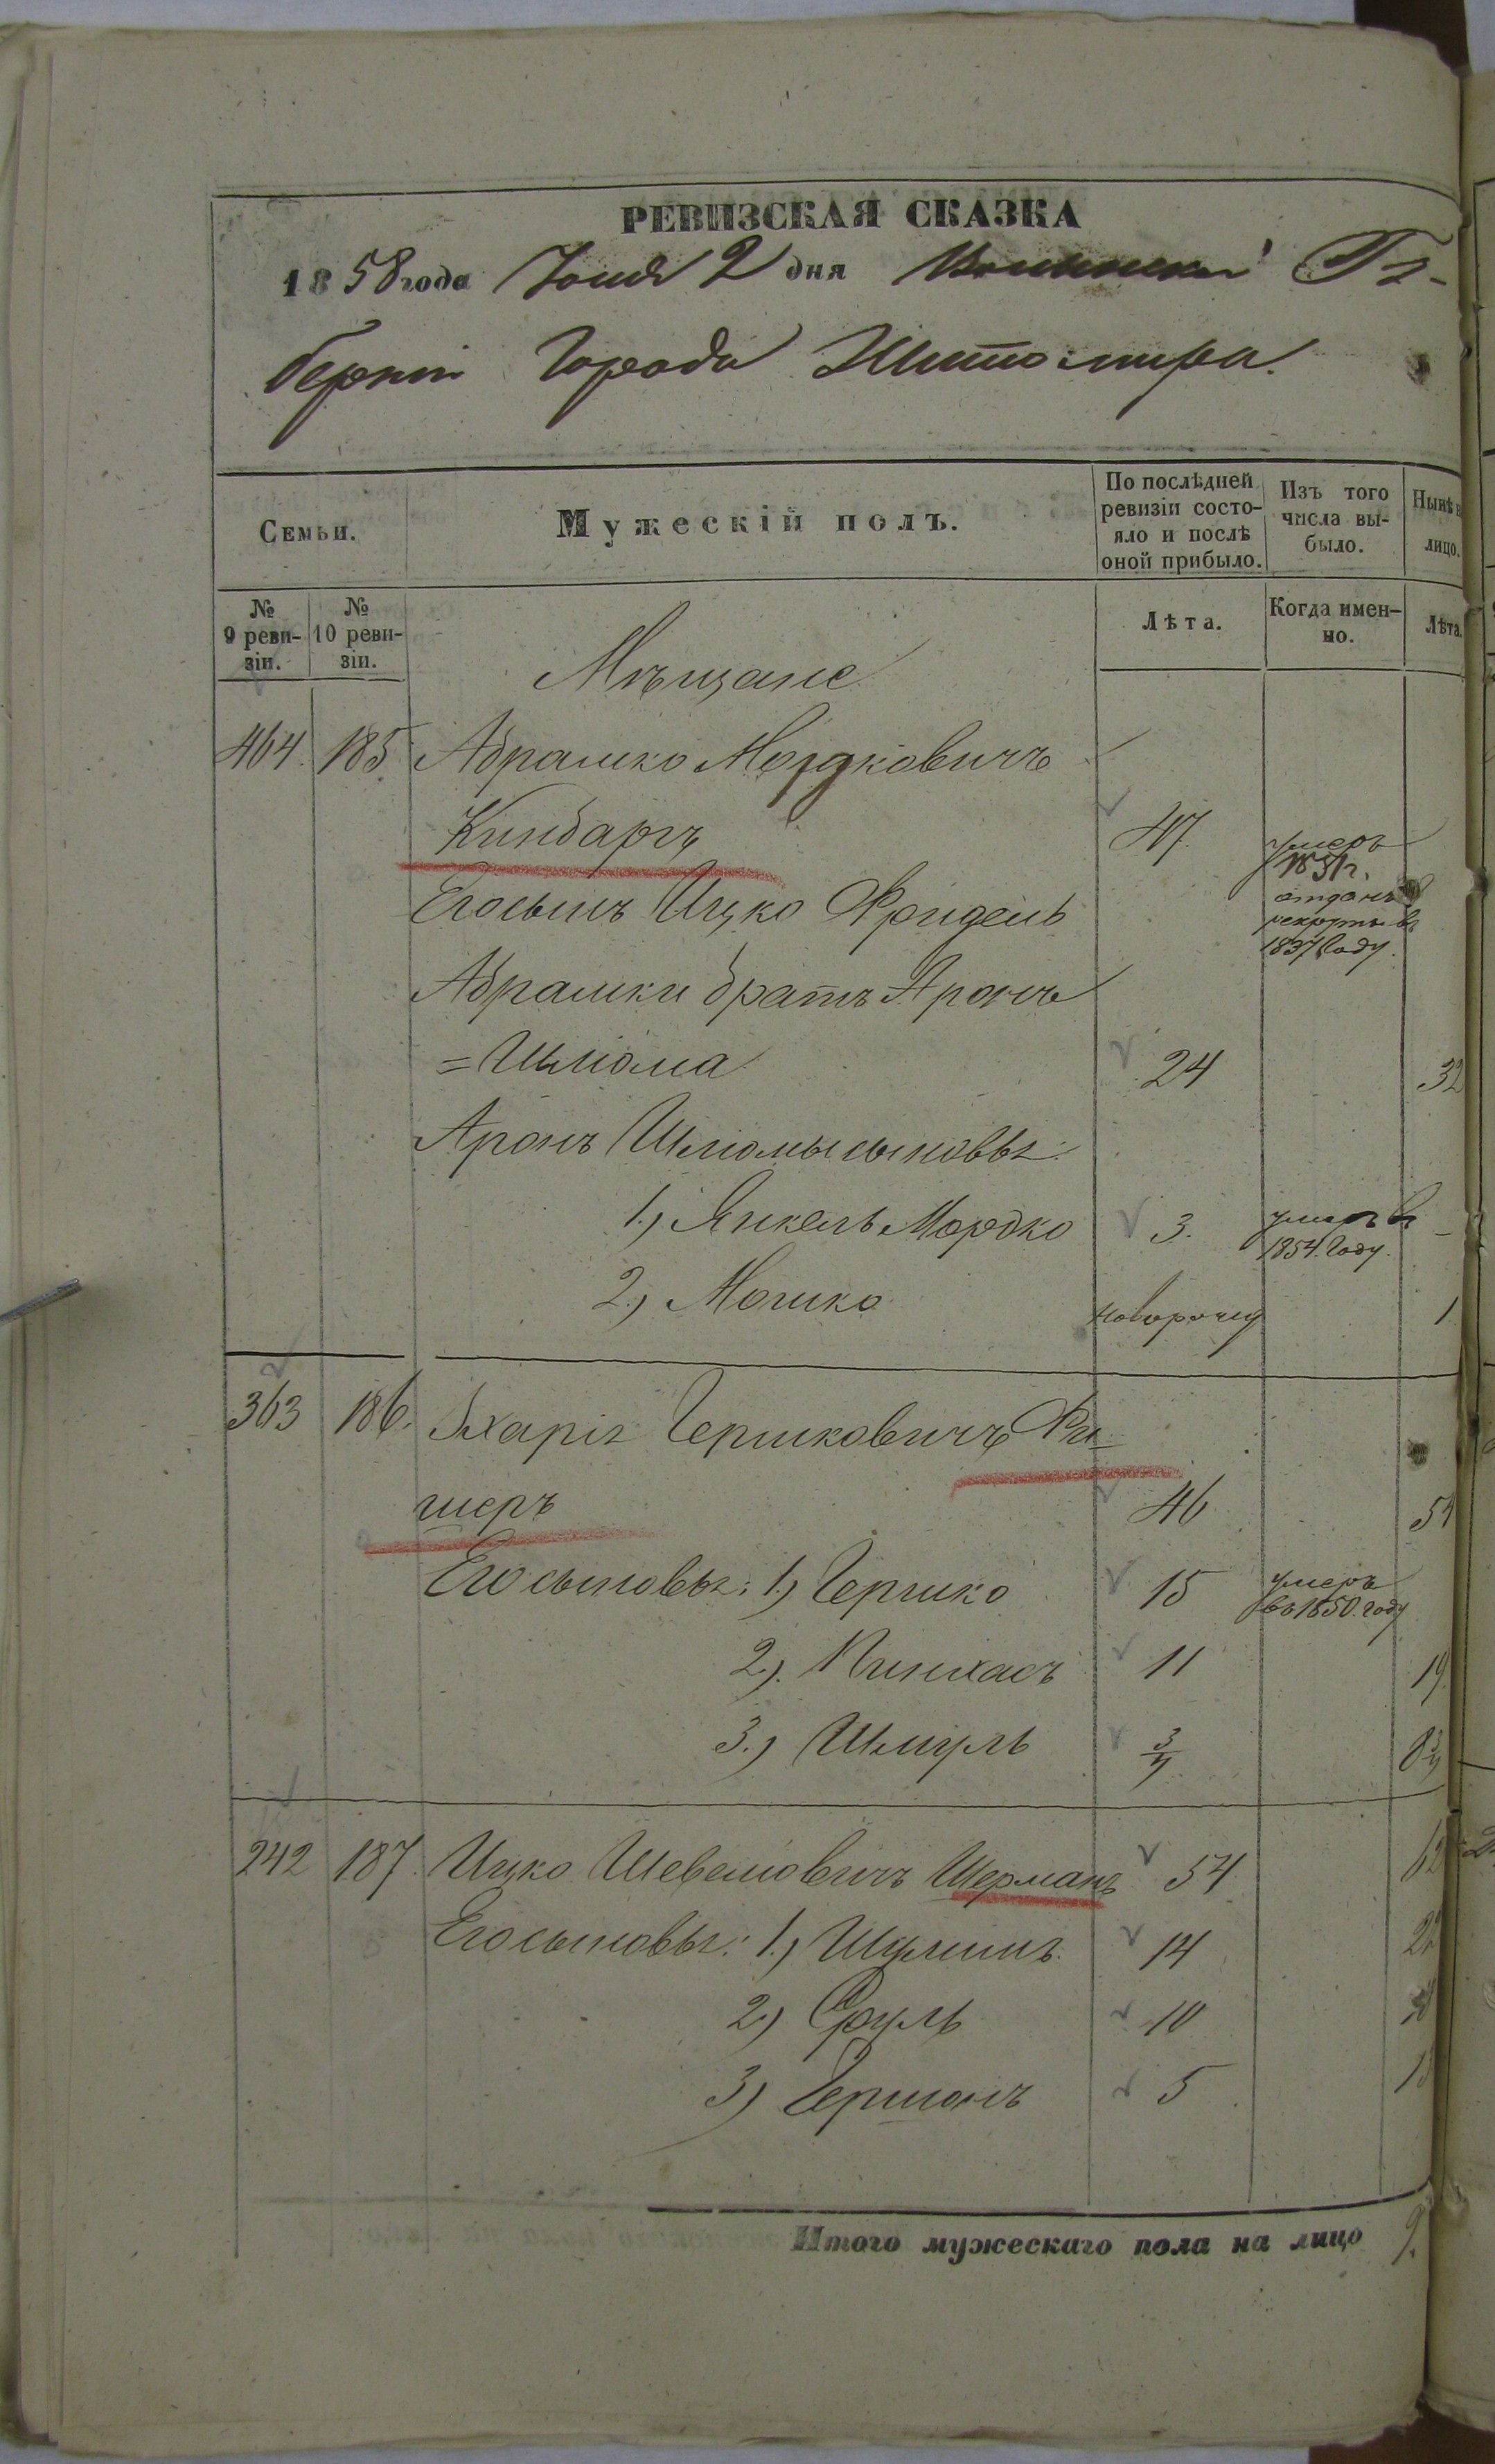 РЕВИЗСКАЯ СКАЗКА
1858 года Іюня 2 дня Волынской Гу-
берніи Города Житомира.
Семьи.
Мужескій полъ.
По послѣдней ревизіи состо-яло и послѣ оной прибыло.
Изъ того числа вы-было.
Нынѣ в лицо.
№ 9 реви-зіи.
№ 10 реви-зіи.
Лѣта.
Когда имен-но.
Лѣта.
Мѣщане
464. 185. Абрамко Мордковичъ
Кинбаргъ 47. умеръ 1851 г.
Его сынъ Ицко Фридель отданъ рекруты въ 1837 Году.
Абрамки братъ Аронъ
=Шлiома 24 32
Аронъ Шлiомы сыновья:
1.) Янкель Мордко 3. умеръ въ 1854. Году. –
2.) Мошко новорожд 1
363 186. Зхарія Гершковичъ Фи-
шеръ 46 54
Его сыновья: 1.) Гершко 15 умеръ въ 1850. году
2.) Пинхасъ 11 19
3.) Шмуль 3/4 8 3/4
242 187. Ицко Шевелiовичъ Шерманъ 54 62
Его сыновья: 1.) Шулимъ 14 22
2.) Сруль 10
3) Гершонъ 5 13
Итого мужескаго пола на лицо 9.